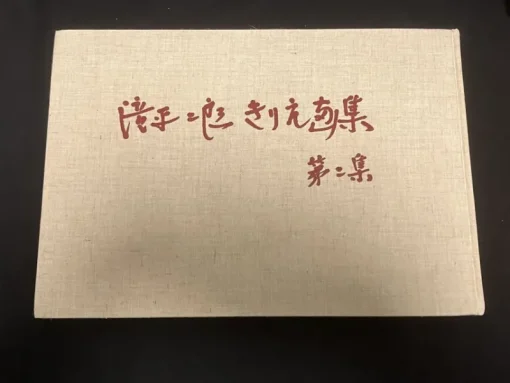 滝平二郎きりえ画集
第二集